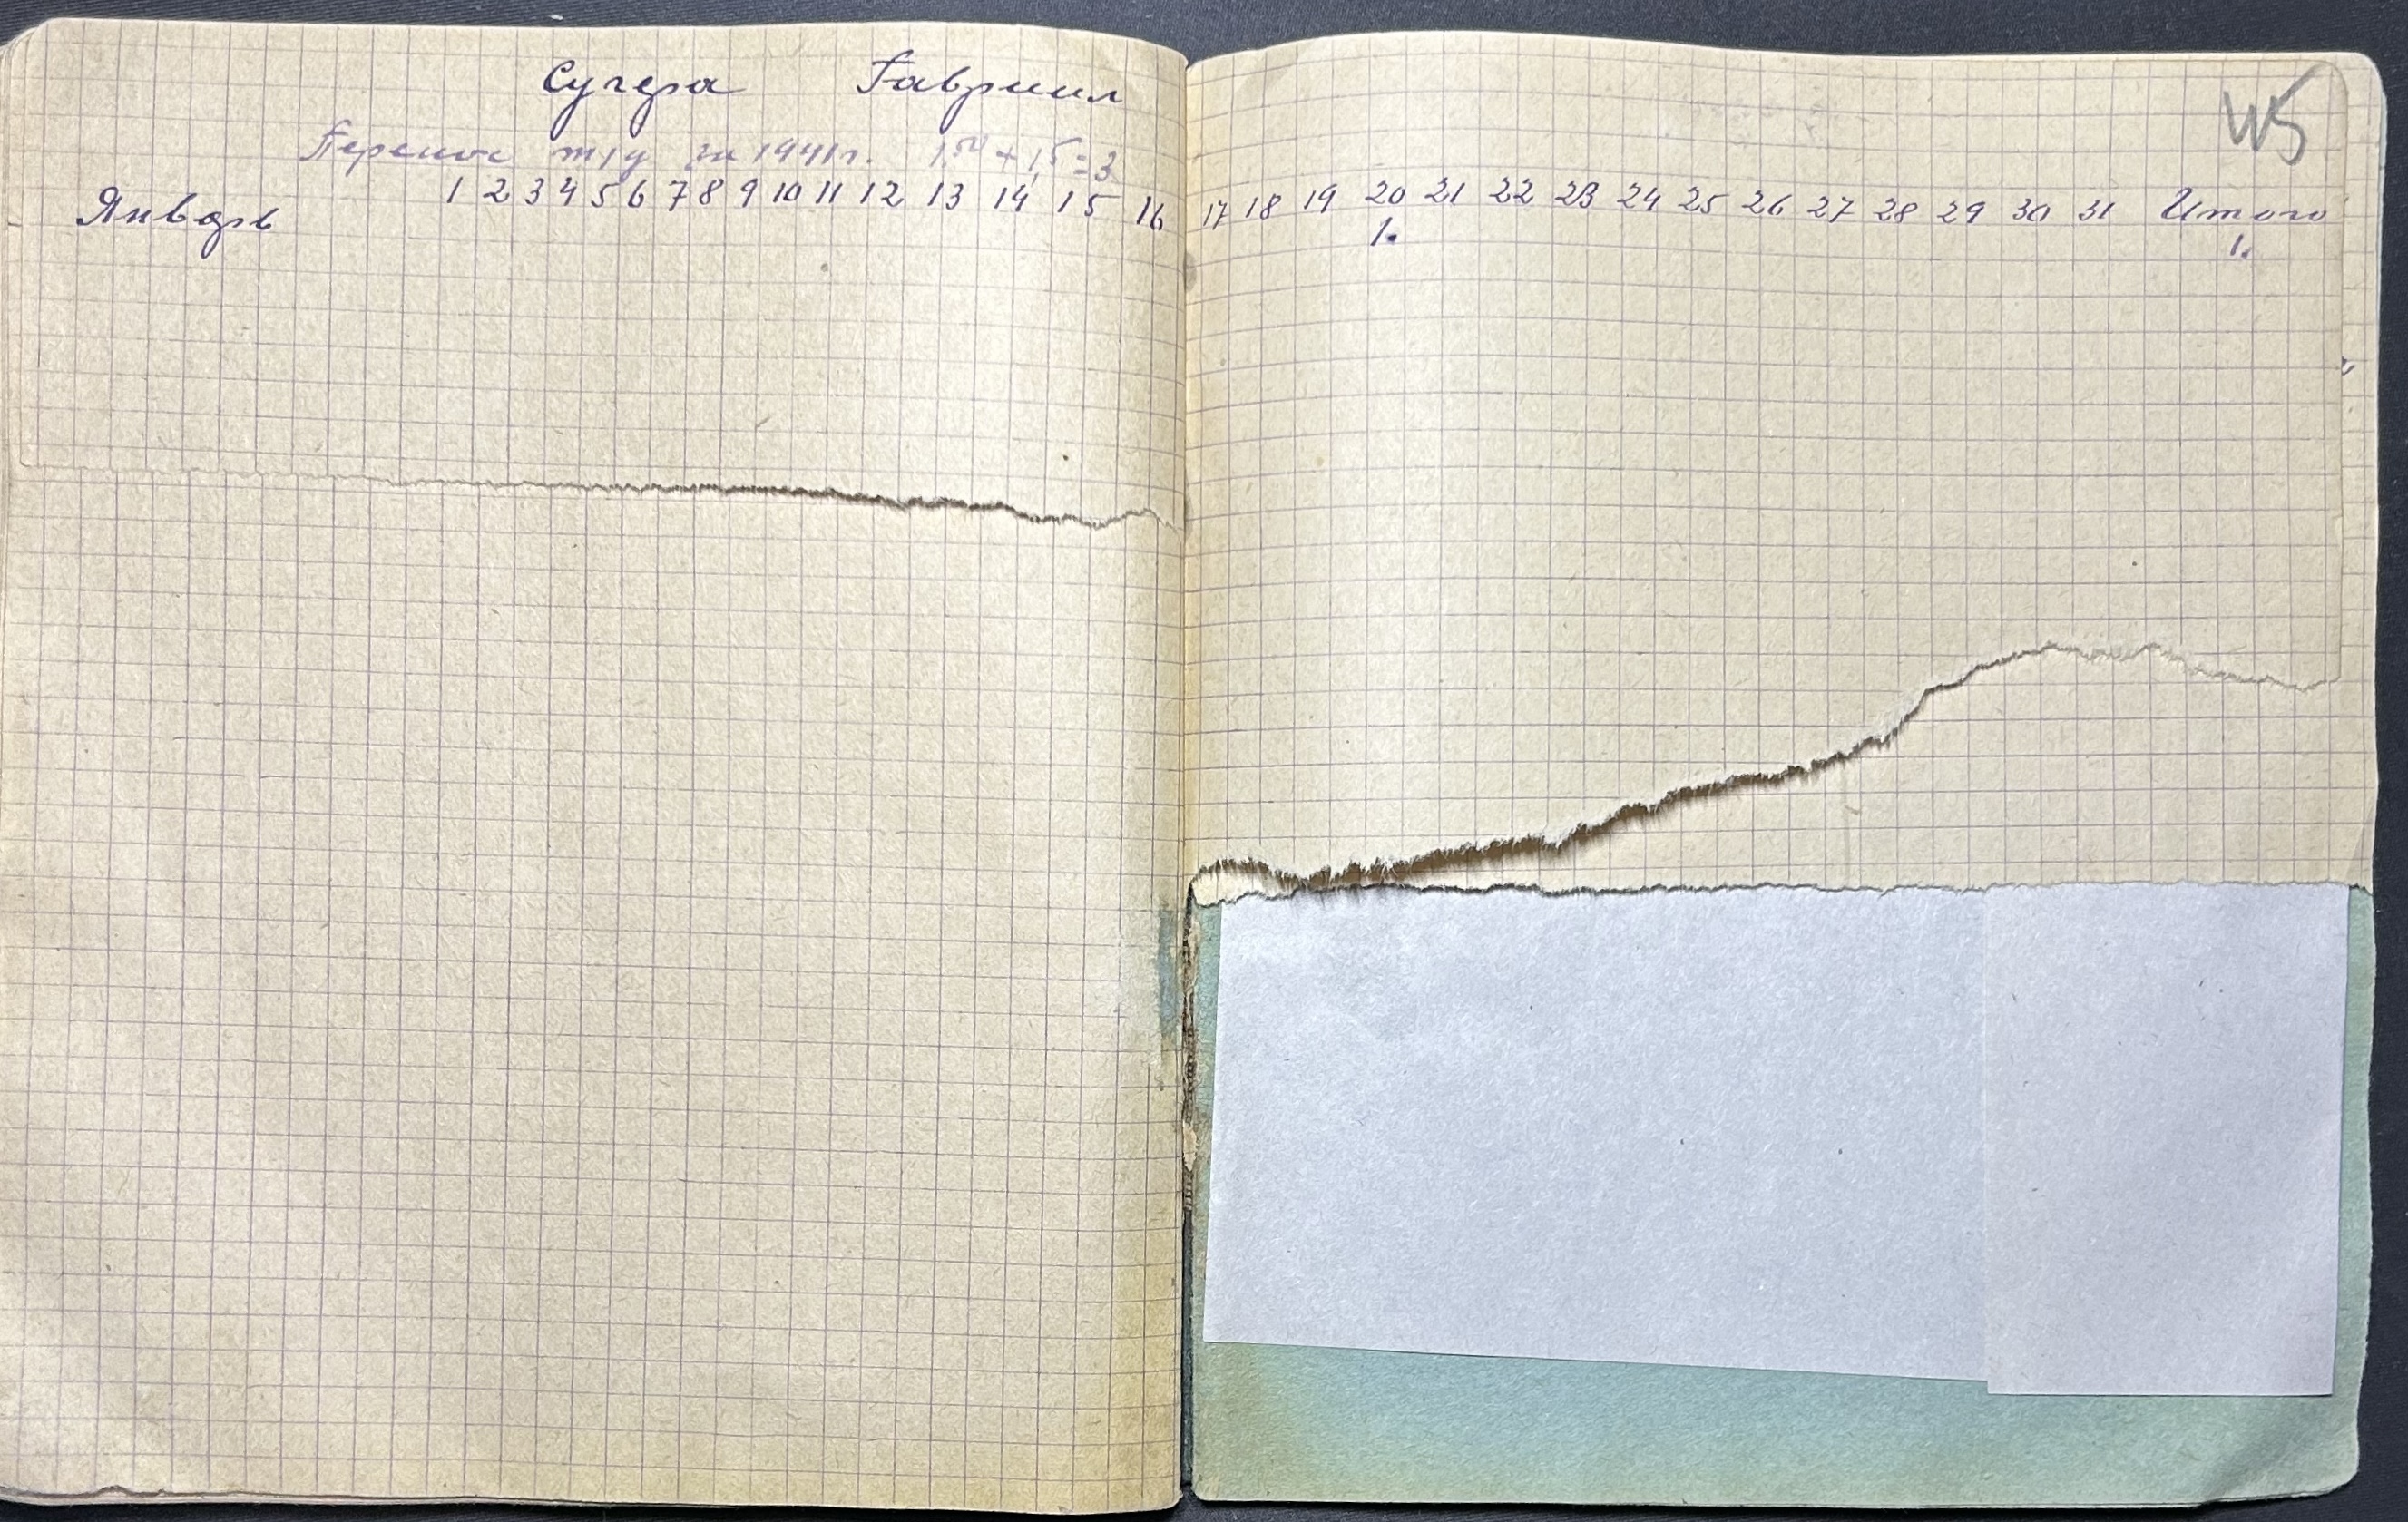 Сугера Гавриил
Перенос т/д за 1941 г. 1,5 + 1,5 = 3
Январь 1 2 3 4 5 6 7 8 9 10 11 12 13 14 15 16 17 18 19 20 21 22 23 24 25 26 27 28 29 30 31 Итого
1. 1.